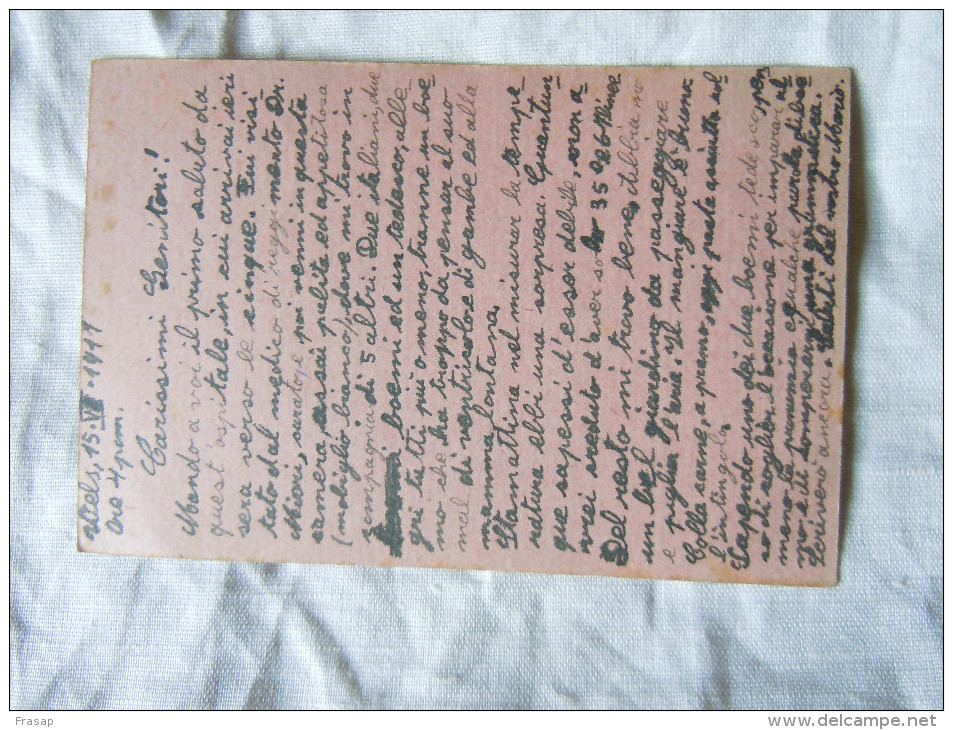 Wels, 15. VII. 1917
ore 4 pom.
Carissimi Genitori!
Mando a voi il primo saluto da
quest'ospitale, in cui arrivai ieri
sera verso le cinque. Fui visi-
tato dal medico di reggimento Dr.
Miori, poi venni in questa
camera, assai pulita ed appetitosa
(mobiglio bianco), dove mi trovo in
compagnia di 5 altri. Due italiani, due
boemi ed un tedesco, alle-
gri tutti più o meno, tranne un boe-
mo che ha troppo da pensar al suo
mal di ventricolo e di gambe ed alla
mamma lontana.
Stamattina nel misurar la tempe-
ratura ebbi una sorpresa. Quantun-
que sapessi d'esser debole, non a-
vrei creduto d'aver solo 35 e 26
Del resto mi trovo bene, abbiamo
un bel giardino da passeggiare
e pigliar l'aria. Il mangiare è buono.
Colla carne, a pranzo, oggi pasta asciutta col
l'intingolo.
Sapendo uno dei due boemi tedesco, pen
so di coglier l'occasione per imparar al-
meno la pronunzia e qualche parola di boe
mo e di comperarmi una grammatica.
Scriverò ancora. Saluti dal vostro Mario.
Frasap
www.delcampe.net